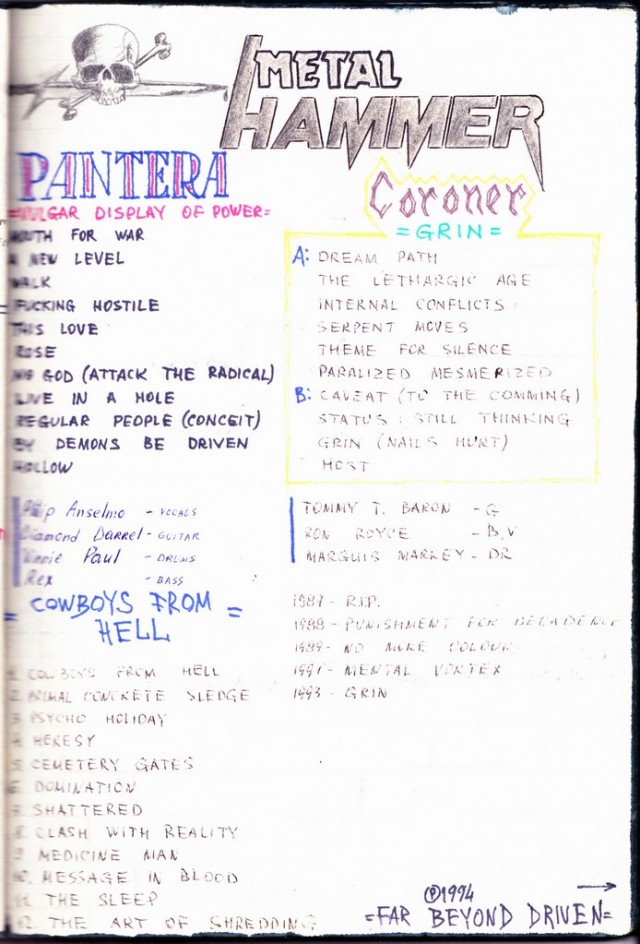 METAL
HAMMER
PANTERA
=VULGAR DISPLAY OF POWER=
MOUTH FOR WAR
A NEW LEVEL
WALK
FUCKING HOSTILE
THIS LOVE
RISE
NO GOD (ATTACK THE RADICAL)
LIVE IN A HOLE
REGULAR PEOPLE (CONCEIT)
BY DEMONS BE DRIVEN
HOLLOW
Philip Anselmo - VOCALS
Diamond Darrel - GUITAR
Vinnie Paul - DRUMS
Rex - BASS
= COWBOYS FROM =
HELL
1. COWBOYS FROM HELL
2. PRIMAL CONCRETE SLEDGE
3. PSYCHO HOLIDAY
4. HERESY
5. CEMETERY GATES
6. DOMINATION
7. SHATTERED
8. CLASH WITH REALITY
9. MEDICINE MAN
10. MESSAGE IN BLOOD
11. THE SLEEP
12. THE ART OF SHREDDING
Coroner
=GRIN=
A: DREAM PATH
THE LETHARGIC AGE
INTERNAL CONFLICTS
SERPENT MOVES
THEME FOR SILENCE
PARALIZED MESMERIZED
B: CAVEAT (TO THE COMMING)
STATUS : STILL THINKING
GRIN (NAILS HURT)
HOST
TOMMY T. BARON - G
RON ROYCE - B, V
MARQUIS MARKEY - DR
1987 - R.I.P.
1988 - PUNISHMENT FOR DECADENCE
1989 - NO MORE COLOUR
1991 - MENTAL VORTEX
1993 - GRIN
©1994 →
=FAR BEYOND DRIVEN=